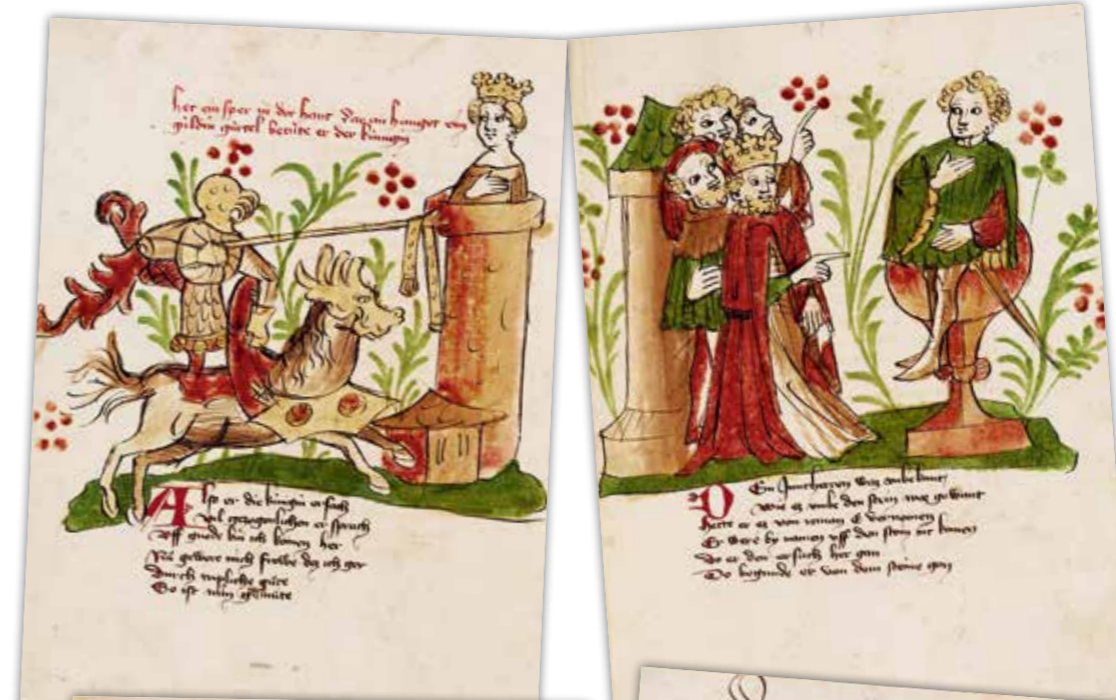 het ein sper in der hant dar an hanget ein
guldin gürtel betute er der kunigin
Also er die kunigin ersach
vil gezogenlichen er sprach
Uff gnode bin ich komen her
Nu gewere mich frowe des ich ger
Durch wipliche güte
So ist min gemüte
Den Juncherren waz unbekant
wie ez umbe den stein waz gewant
hette er ez von E vernomen
Er were by namen uff den stein nit komen
Do er den ersach her gan
Do begunde er von dem steine gon